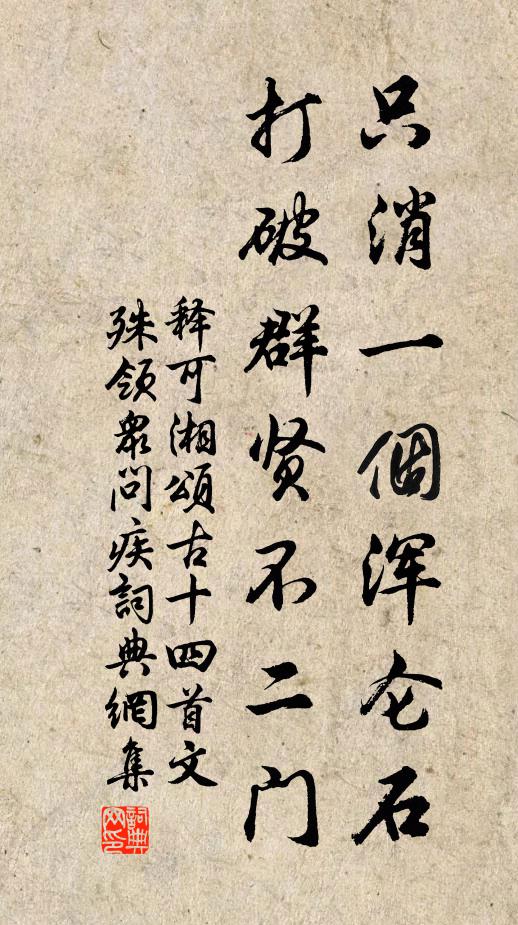 只消一個浑仑石
打破群贤不二门
释可湘頌古十四首文
殊领衆问疾詞典網集
詞典
网印